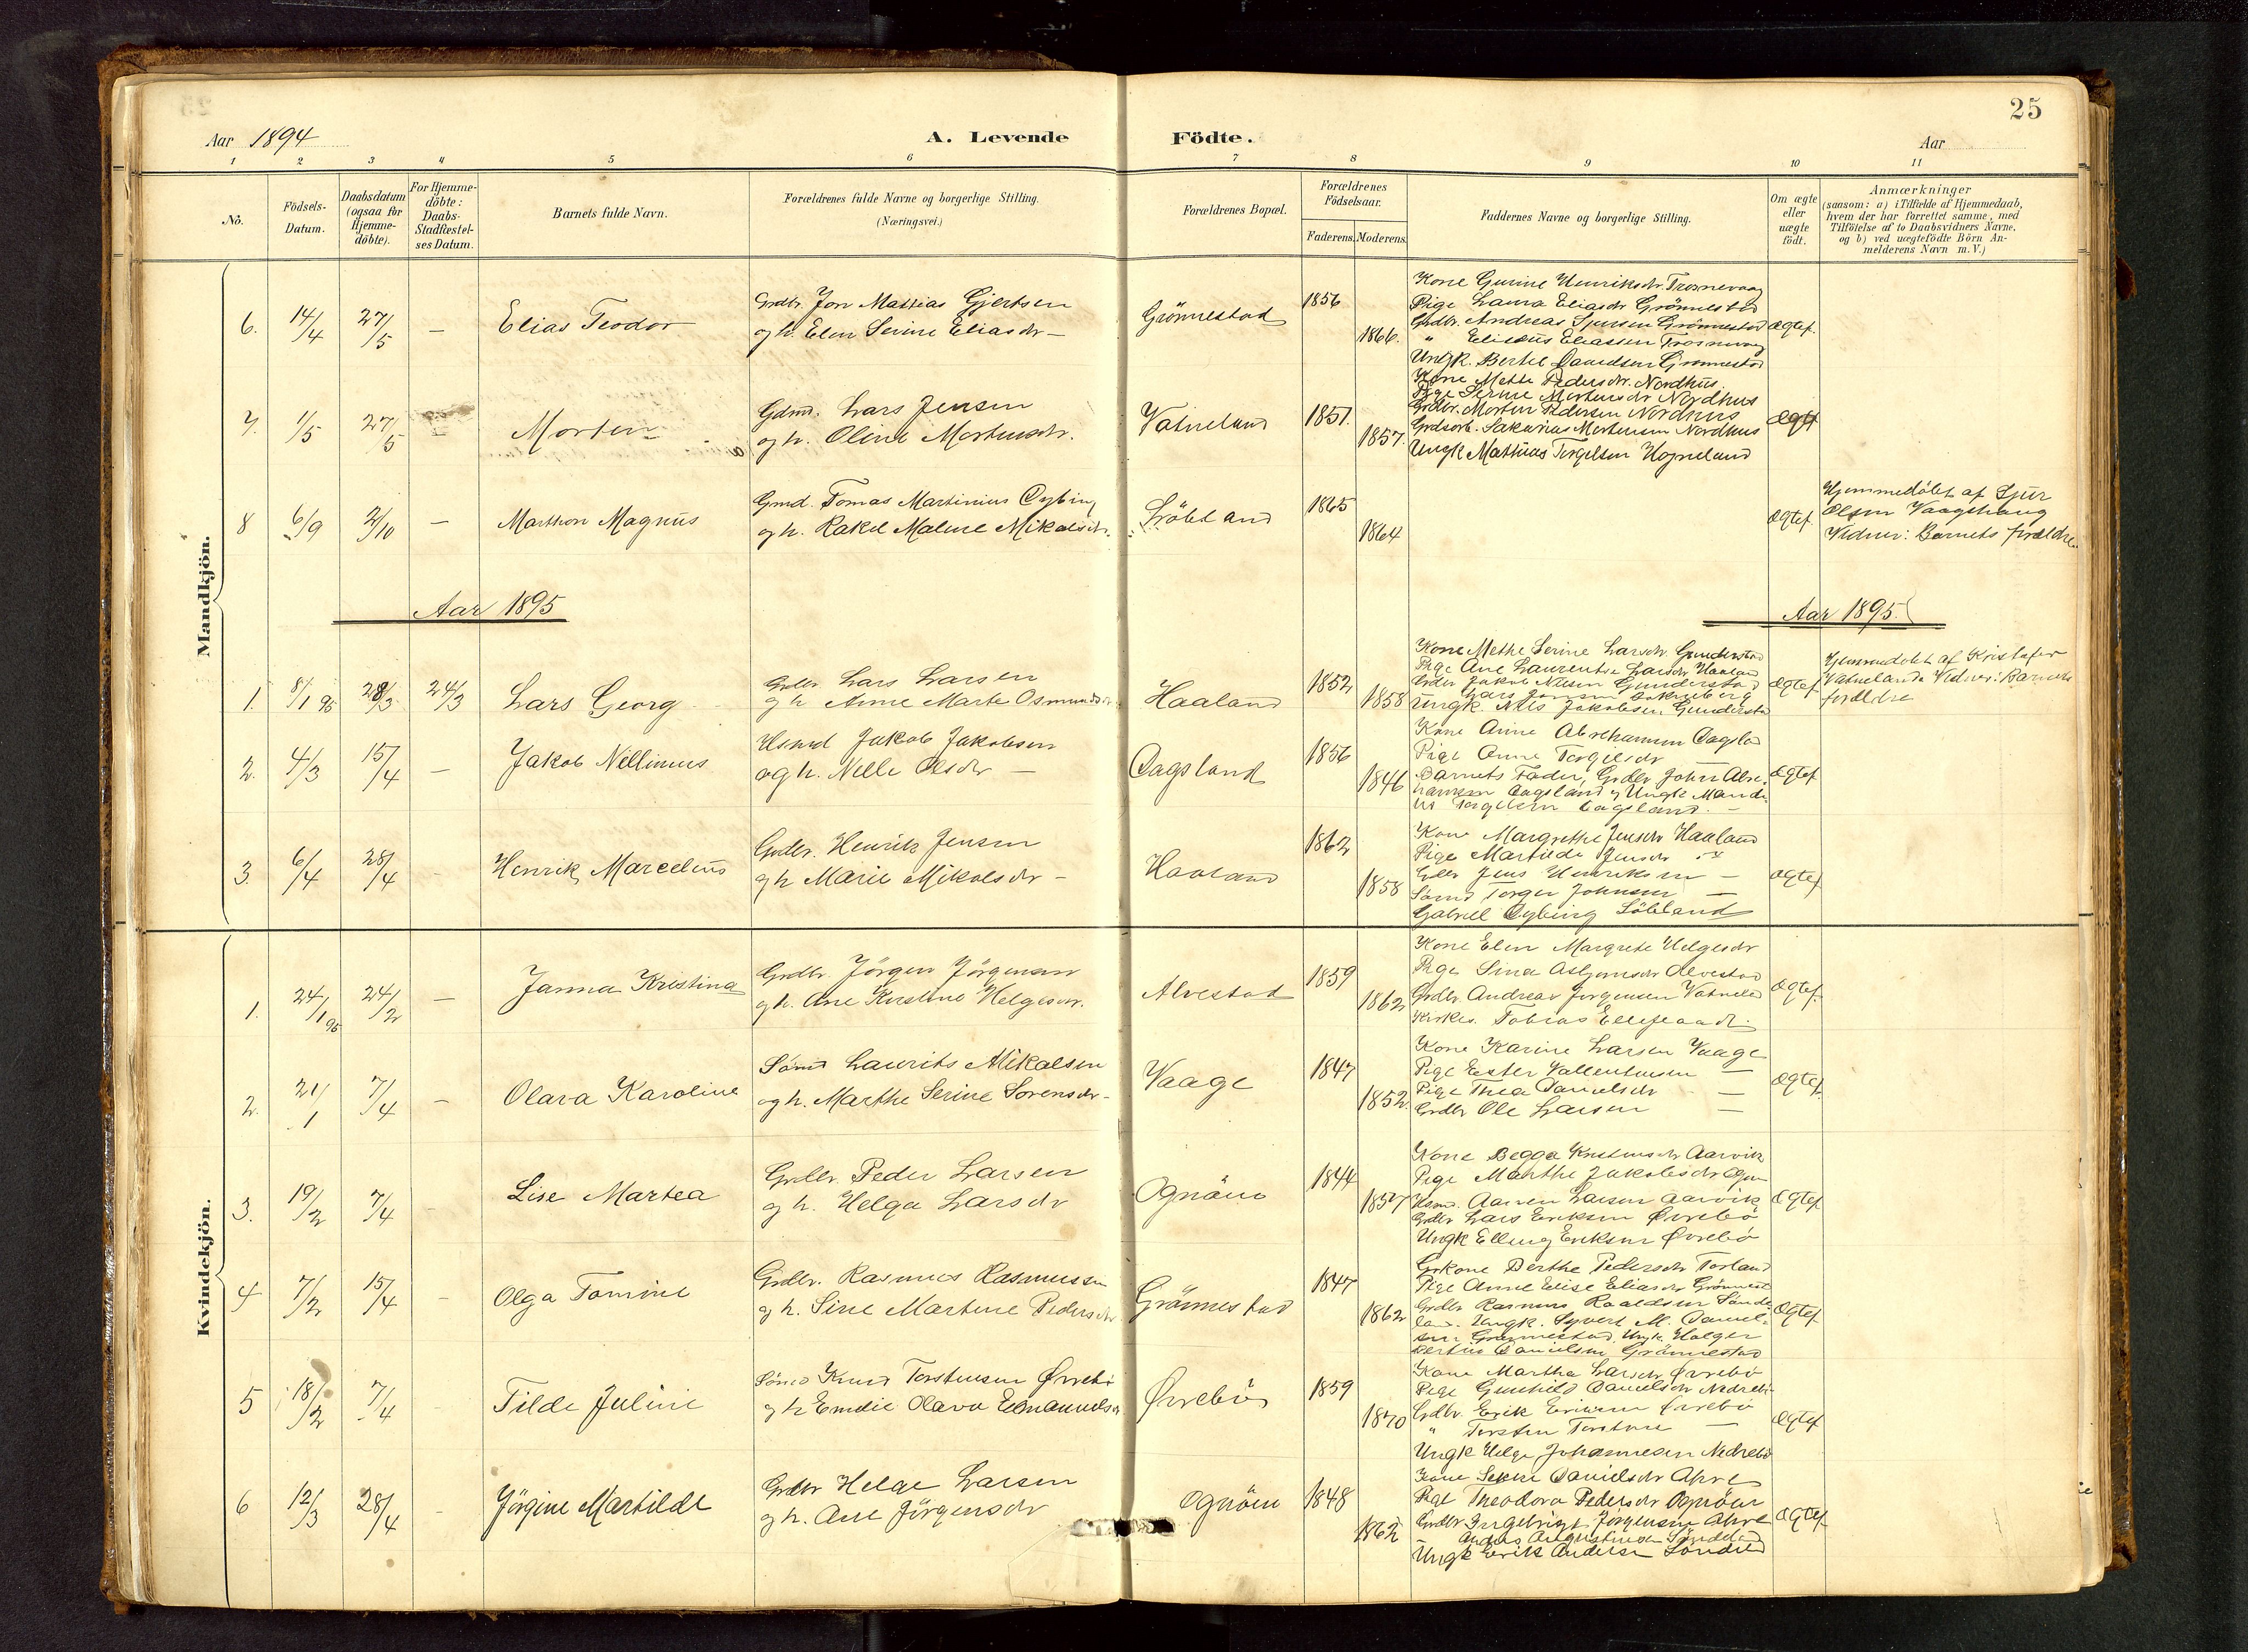 25
Aar 1894
A. Levende Födte.
Aar
1 2 3 4 5 6 7 8 9 10 11
No.
Födsels-Datum.
Daabsdatum (ogsaa for Hjemme-döbte).
For Hjemme-döbte: Daabs-Stadfæstel-ses Datum.
Barnets fulde Navn.
Forældrenes fulde Navne og borgerlige Stilling.
(Næringsvei.)
Forældrenes Bopæl.
Forældrenes Födselsaar.
Faderens. Moderens.
Faddernes Navne og borgerlige Stilling.
Om ægte eller uægte födt.
Anmærkninger
(saasom: a) i Tilfælde af Hjemmedaab, hvem der har forrettet samme, med Tilföielse af to Daabsvidners Navne, og b) ved uægtefödte Börn An-melderens Navn m.V.)
Mandkjön.
6. 14/4 27/5 — Elias Teodor
Grdbr. Jon Mathias Gjertsen
og h. Elen Serine Eliasdr —
Grönnestad 1856 1866.
Kone Gurine Henriksdr.
Pige Laura Eliasdr Grönnestad
Grdbr. Andreas Grönnestad
" Eliseus Eliassen
Ungk. Bertel Danielsen Grönnestad
Ægtef.
7. 1/5 27/5 — Morten
Gdmd. Lars Jensen
og h. Oline Mortensdr.
Vatneland 1851. 1857.
Kone Mette Pedersdr. Nordhus
Pige Serine Mortensdr Nordhus
Grdbr. Morten Pedersen Nordhus
Sakarias Mortensen Nordhus
Ungk Mathias Torgilsen Hogneland
Ægtf
8 6/9 2/10 — Marthon Magnus
Gmd. Tomas Martinius Dybing
og h. Rakel Maline Mikalsdr.
Löbland 1865 1864
Ægtef.
Hjemmedöbt af Sjur
Olsen Vaagshaug
Vidner: Barnets forældre.
Aar 1895
Aar 1895.
1. 8/1 95 28/3 24/3 Lars Georg
Grdbr. Lars Larsen
og h Anne Marte Osmundsdr
Haaland 1852 1858
Kone Methe Serine Larsdr. Gunderstad
Pige Ane Laurentse Larsdr. Haaland
Grdbr Jakob Nilsen Gunderstad
Lars Jonsen
Ungk. Nils Jakobsen Gunderstad
Ægtef
Hjemmedöbt af Kristofer
Vatneland. Vidner: Barnets
forældre
2. 4/3 15/4 — Jakob Nellimus
Husmd Jakob Jakobsen
og h. Nelle Olsdr —
Dagsland 1856 1846
Kone Anne Abrahamsen Dagsld
Pige Anne Torgilsdr
Barnets Fader, Grdbr John Abra-
hamsen Dagsland og Ungk Mandi-
us Torgilsen Dagsland. —
Ægtef
3. 6/4 28/4 - Henrik Marcelius
Grdbr. Henrik Jensen
og h Marie Mikalsdr —
Haaland 1862 1858
Kone Margrethe Jensdr Haaland
Pige Martilde Jensdr "
Grdbr Jens Henriksen —
Sömd Torger Johnsen —
Gabriel Dybing Löbland
Ægtef
Kvindekjön.
1. 24/1 95 24/2 — Janna Kristina
Grdbr. Jörgen Jörgensen
og h. Ane Kirstine Helgesdr.
Alvestad 1859 1862
Kone Elen Margrete Helgesdr
Pige Sina Asbjörnsdr Alvestad
Grdbr. Andreas Jorgensen Vatneld
Kirkes. Tobias
Ægtef.
2. 21/1 7/4 — Olava Karoline
Sömd Laurits Mikalsen
og h. Marthe Serine Sorensdr —
Vaage 1847 1852
Kone Karine Larsen Vaage
Pige Ester Vallentinsen —
Pige Thea Danielsdr —
Grdbr Ole Larsen —
Ægtef.
3. 19/2 7/4 - Lise Martea
Grdbr. Peder Larsen
og h. Helga Larsdr
Ognöen 1844 1857
Kone Begga Kristensdr Aarvik
Pige Marthe Jakobsdr Ogn
Husmd. Aanen Larsen Aarvik
Grdbr Lars Eriksen Övrebö
Ungk Elling Eriksen Övrebö
Ægtef
4 7/2 15/4 - Olga Tomine
Grdbr. Rasmus Rasmussen
og h. Sine Martine Pedersdr
Grönnestad 1847 1862
Grkone Berthe Pedersdr Torland
Pige Anne Elise Eliasdr Grönnest
Grdbr Rasmus Raaldsen Sönde-
land. Ungk. Syvert M. Daniel-
sen Grönnestad, Ungk. Holger
Bertin Danielsen Grönnestad
Ægtef
5 18/2 7/4 - Tilde Juline
Sömd Knud Torstensen Övrebö
og h Emelie Olava Emanuelsdr
Övrebö 1859 1870
Kone Martha Larsdr Övrebö
Pige Gunhild Danielsdr Nedrebö
Grdbr. Erik Eriksen Övrebö
" Torsten Torstensen —
Ungk Helge Johannesen Nedrebö
Ægtef
6 12/3 28/4 - Jörgine Martilde
Grdbr Helge Larsen
og h. Ane Jörgensdr
Ognöen 1848 1862
Kone Danielsdr Ahre
Pige Theodora Pedersdr Ognöen
Grdbr Ingebrigt Jörgensen Ahre
Anders Augustinsen Söndeland
Ungk Erik Andersen Söndeld
Ægtef